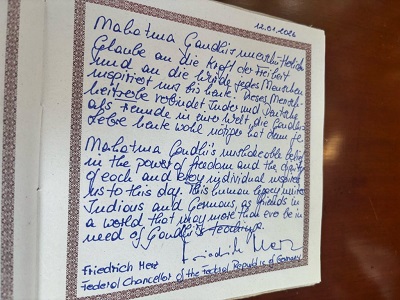 12.01.2026
Mahatma Gandhis unerschütterlicher
Glaube an die Kraft der Freiheit
und an die Würde jedes Menschen
inspiriert uns bis heute. Dieses
verbindet Inder und Deutsche
als Freunde in einer Welt, die Gandhis
Lehre heute wohl nötiger hat denn je.
Mahatma Gandhi's unshakeable belief
in the power of freedom and the dignity
of each and every individual inspires
us to this day. This human legacy unites
Indians and Germans, as friends in
a world that may more than ever be in
need of Gandhi's teachings.
Friedrich Merz
Friedrich Merz
Federal Chancellor of the Federal Republic of Germany